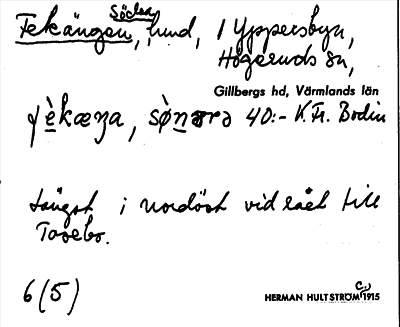 Fekängen, Södra, hund, 1 Yppersbyn,
Högeruds sn,
Gillbergs hd, Värmlands län
fèkæŋa, sø̀nɔrə 40:- K. Fr. Bodin
längst i nordöst vid rået till
Tosebo.
6 (5)
HERMAN HULTSTRÖM C., 1915